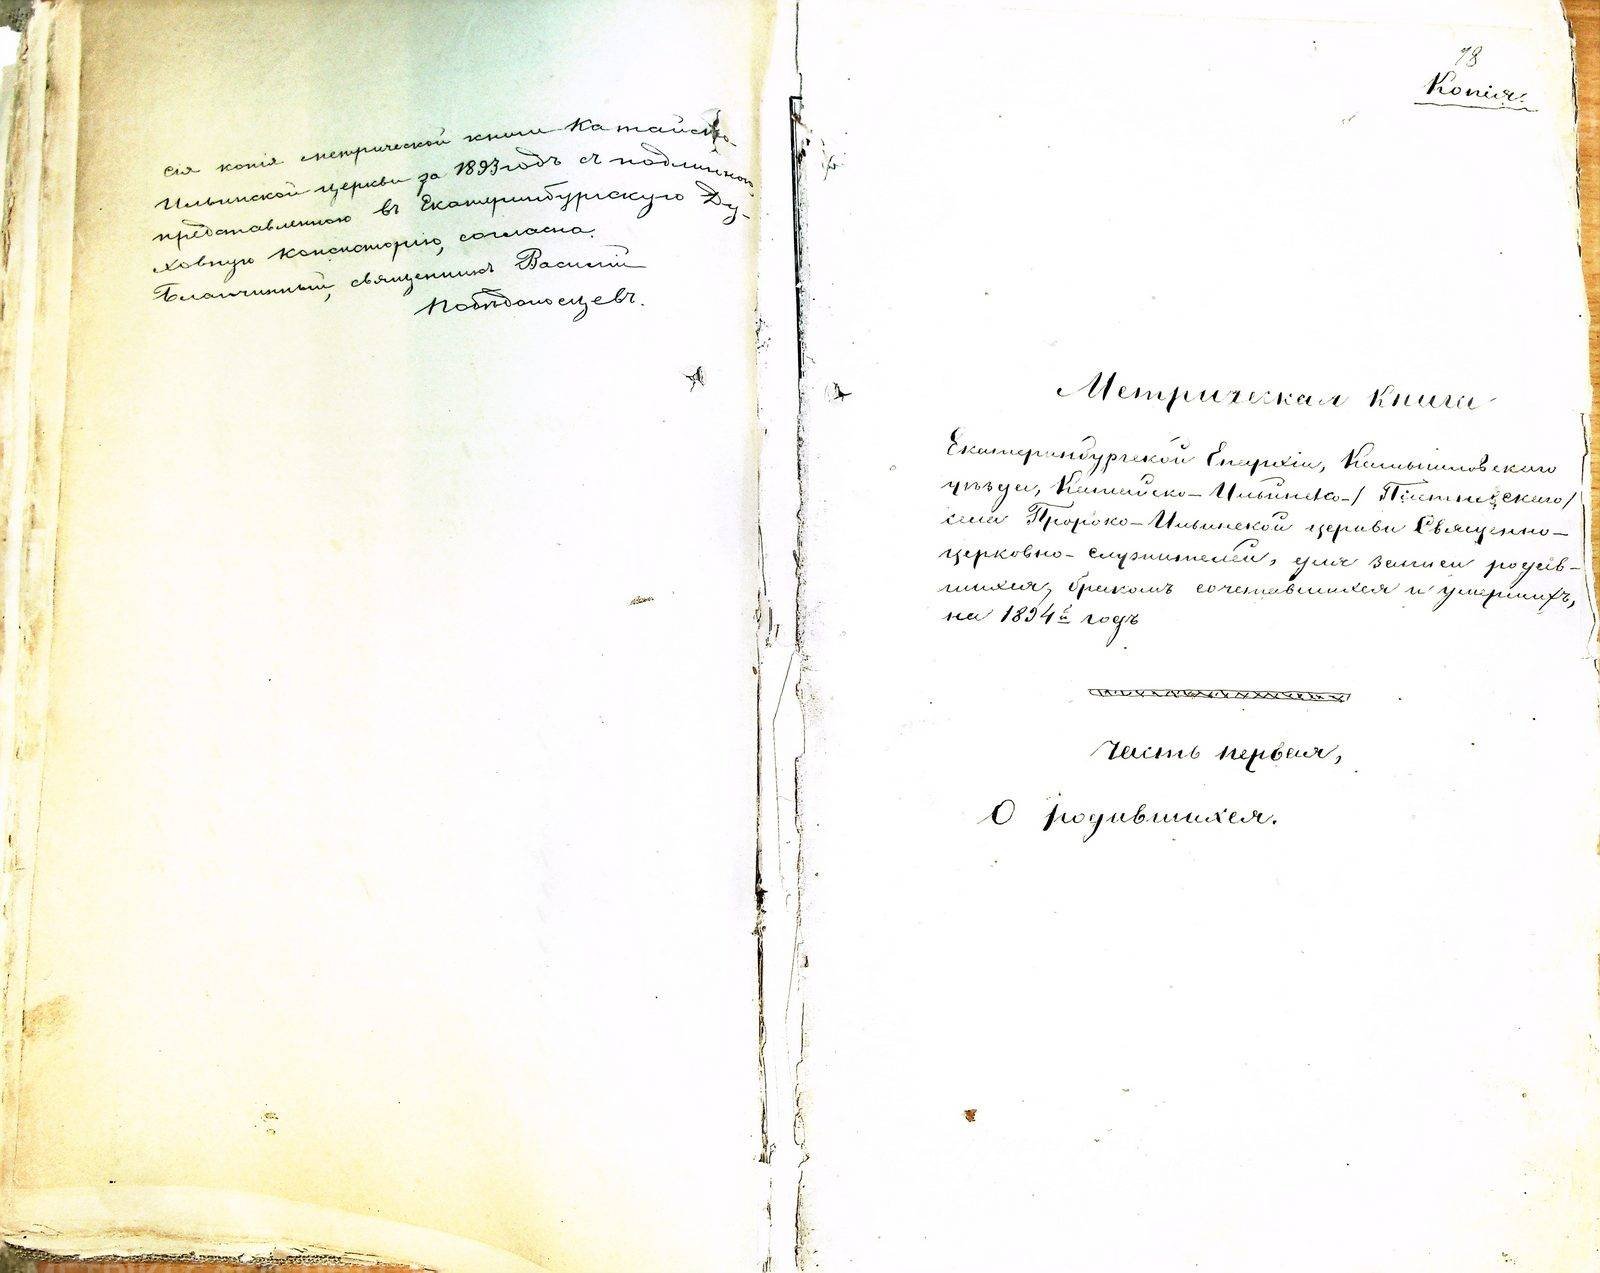 сія копія метрической книги Катайско-
Ильинской церкви за 1893 годъ съ подлинной,
представленною въ Екатеринбургскую Ду-
ховную Консисторію, согласна.
Благочинный, священникъ Василій
Побѣдоносцевъ.
78
Копія.
Метрическая книга
Екатеринбургской Епархіи, Камышловскаго
уѣзда, Катайско-Ильинско-/
села Пророко-Ильинской церкви Священно-
церковно-служителей, для записи родив-
шихся, бракомъ сочетавшихся и умершихъ,
на 1894й годъ
Часть первая,
О родившихся.